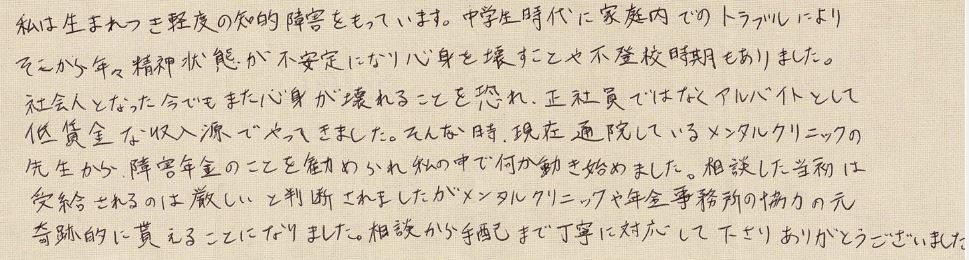 私は生まれつき軽度の知的障害をもっています。中学生時代に家庭内でのトラブルにより
そこから年々精神状態が不安定になり心身を壊すことや不登校時期もありました。
社会人となった今でもまた心身が壊れることを恐れ、正社員ではなくアルバイトとして
低賃金な収入源でやってきました。そんな時、現在通院しているメンタルクリニックの
先生から、障害年金のことを勧められ私の中で何か動き始めました。相談した当初は
受給されるのは厳しいと判断されましたがメンタルクリニックや年金事務所の協力の元
奇跡的に貰えることになりました。相談から手配まで丁寧に対応して下さりありがとうございました